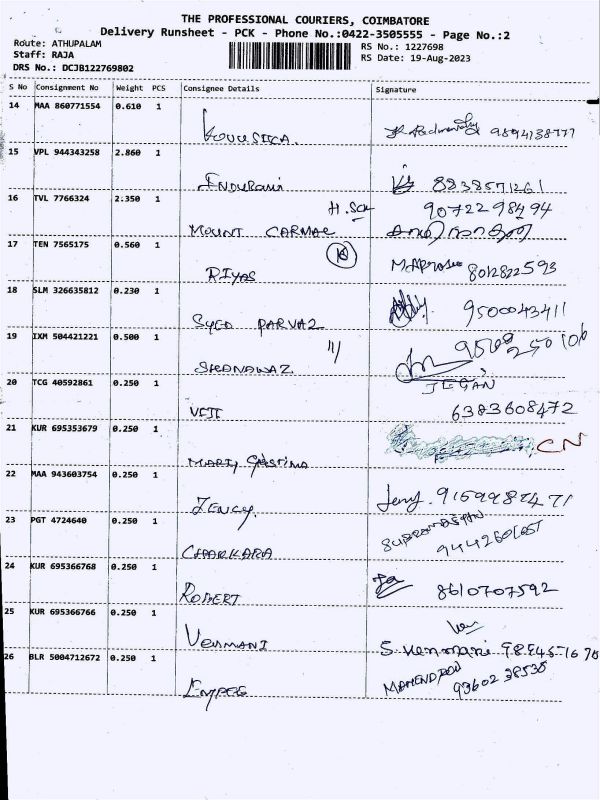 THE PROFESSIONAL COURIERS, COIMBATORE
Delivery Runsheet - PCK - Phone No.:0422-3505555 - Page No.:2
Route: ATHUPALAM
Staff: RAJA
DRS No.: DCJB122769802
RS No.: 1227698
RS Date: 19-Aug-2023
S No Consignment No Weight PCS Consignee Details Signature
14 MAA 860771554 0.610 1
9894138777
15 VPL 944343258 2.860 1
INDURANI 8838571261
16 TVL 7766324 2.350 1
H.Sc 9072298494
MOUNT CARMAL
17 TEN 7565175 0.560 1
RIYAS 8012822593
18 SLM 326635812 0.230 1
SYED PARVAZ 9500043411
19 IXM 504421221 0.500 1
SHANAWAZ
JEGAN
20 TCG 40592861 0.250 1
VIJI 6383608472
21 KUR 695353679 0.250 1
CN
MARTY CRISTINA
22 MAA 943603754 0.250 1
ZENCY
23 PGT 4724640 0.250 1
CHARKARA
24 KUR 695366768 0.250 1
ROBERT 8610707592
25 KUR 695366766 0.250 1
VENMANI S.Venmani
26 BLR 5004712672 0.250 1
MAHENDRAN
93602 38538